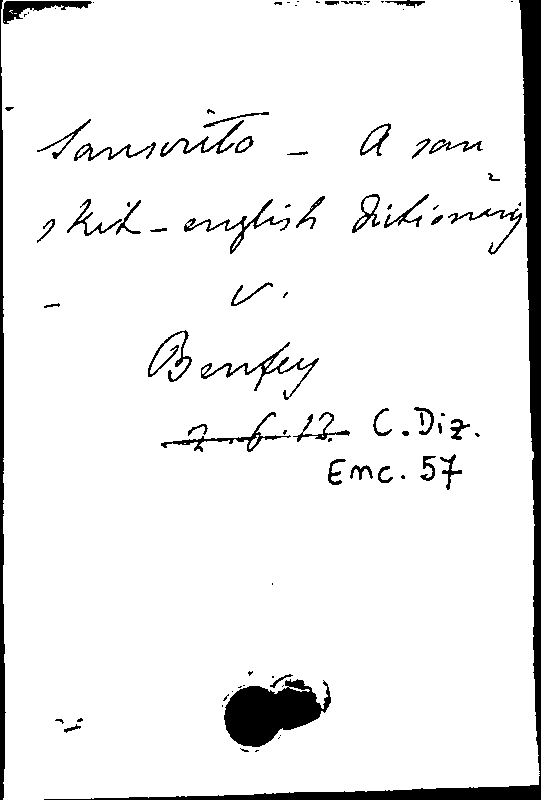 Sanscrito - A san
skit-english dictionary
- v.
Benfey
2.6.13. C.Diz.
Enc. 57